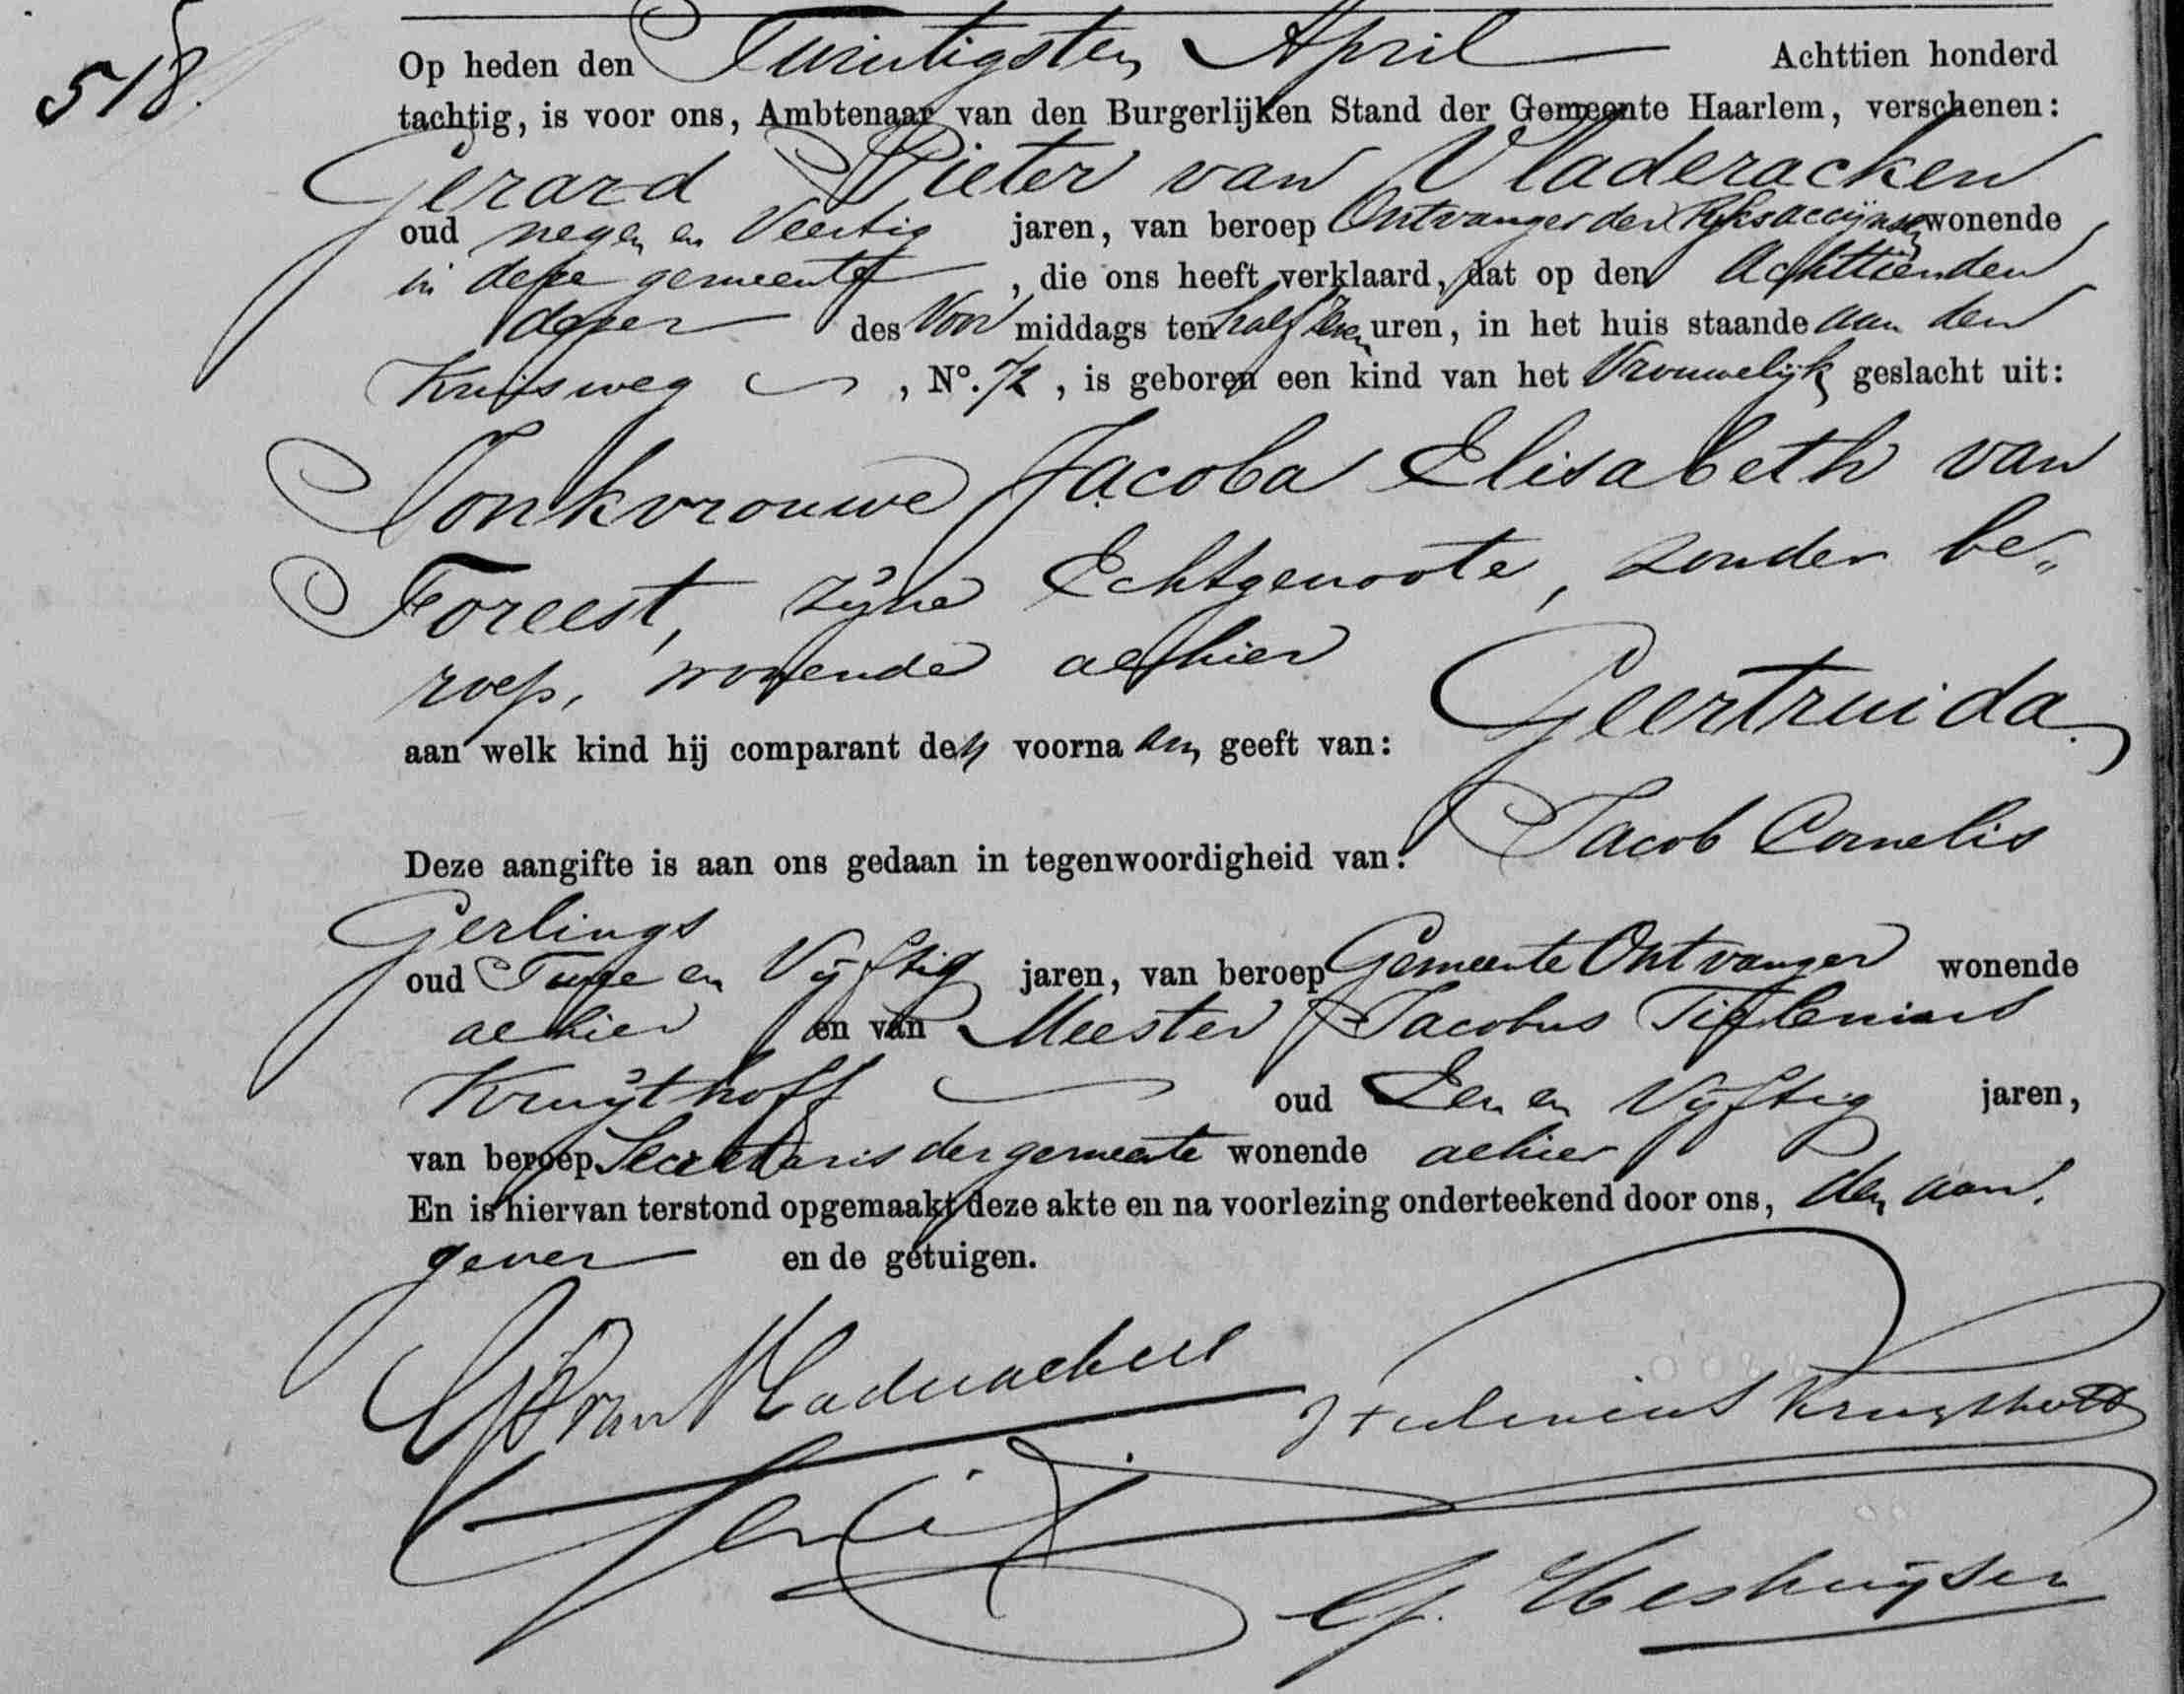 518.
Op heden den Twintigsten April Achttien honderd
tachtig, is voor ons, Ambtenaar van den Burgerlijken Stand der Gemeente Haarlem, verschenen:
Gerard Pieter van Vladeracken
oud negen en Veertig jaren, van beroep Ontvanger der Rijksaccijnsen wonende
in deze gemeente, die ons heeft verklaard, dat op den Achttienden
dezer des Voor middags ten half uren, in het huis staande aan den
Kruisweg, No. 72, is geboren een kind van het Vrouwelijk geslacht uit:
Jonkvrouwe Jacoba Elisabeth van
Foreest, zijne Echtgenoote, zonder be„
roep, wonende alhier
aan welk kind hij comparant den voornaam geeft van: Geertruida
Deze aangifte is aan ons gedaan in tegenwoordigheid van: Jacob Cornelis
Gerlings
oud Twee en Vijftig jaren, van beroep Gemeente Ontvanger wonende
alhier en van Meester Jacobus Tiſlenius
Kruijthoff oud Een en Vijftig jaren,
van beroep Secretaris der gemeente wonende alhier
En is hiervan terstond opgemaakt deze akte en na voorlezing onderteekend door ons, den aan„
gever en de getuigen.
GP van Vladeracken
Kruijthoff
G.